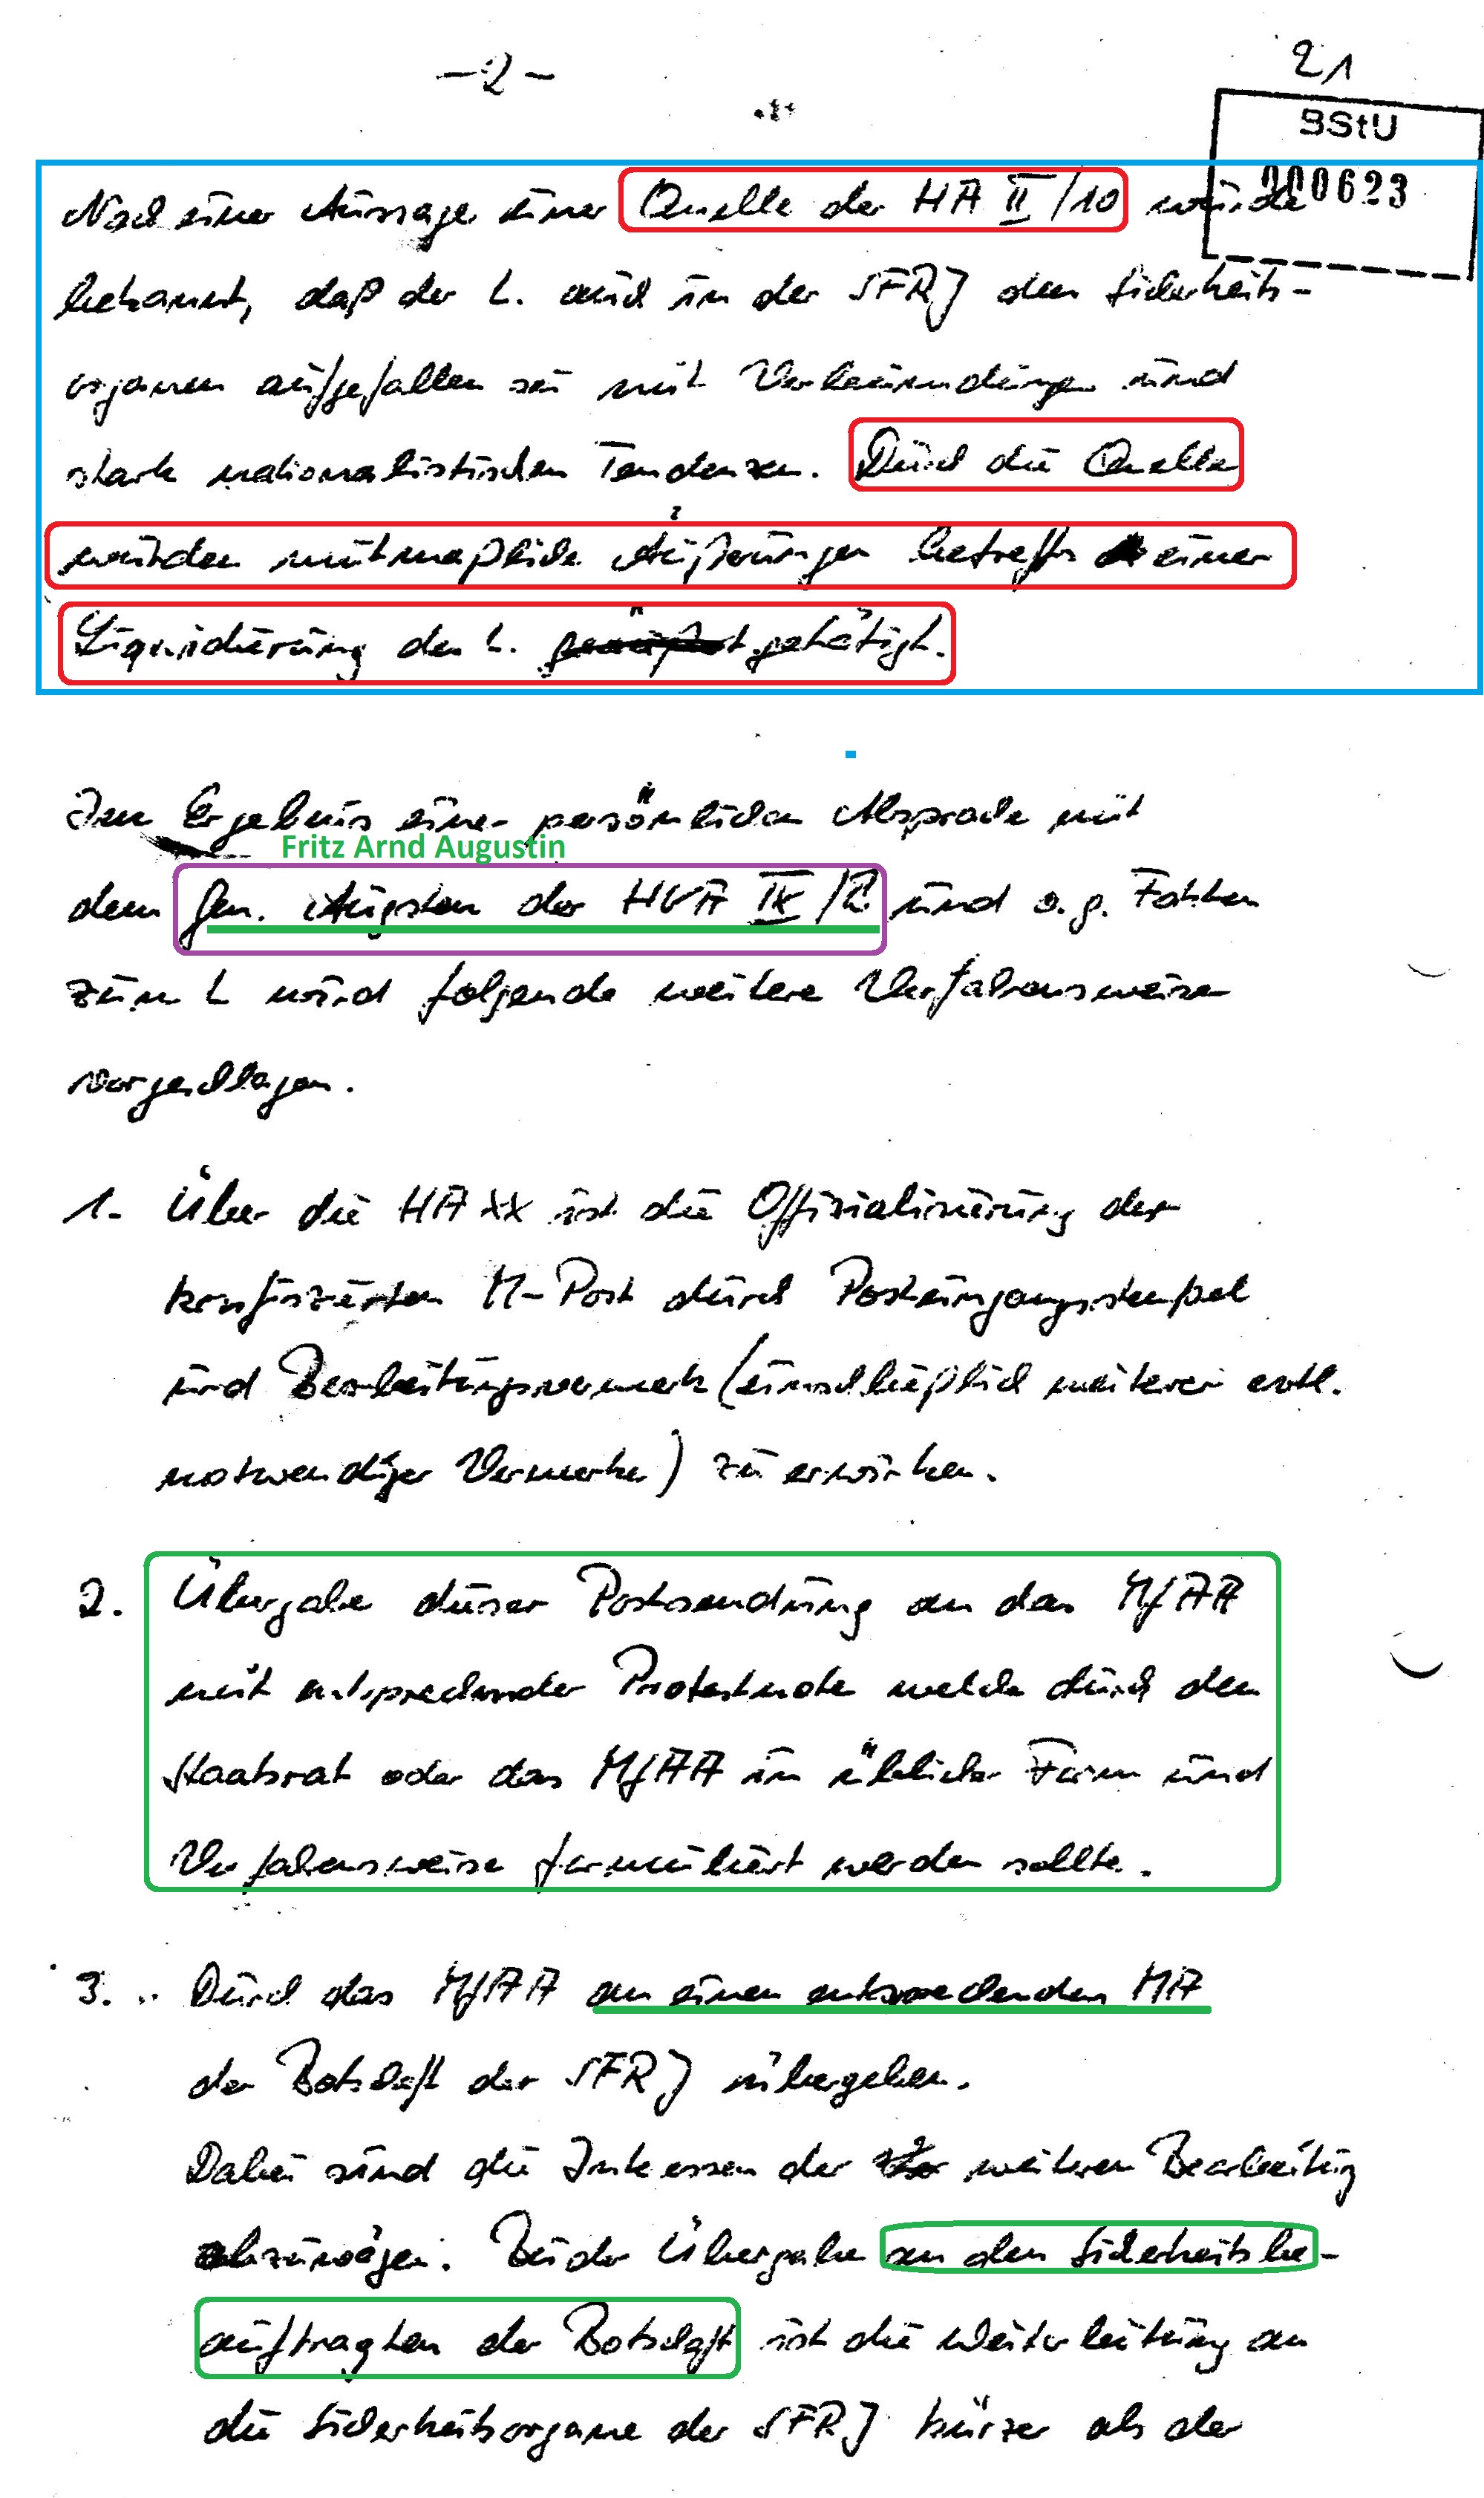 -2-
21
BStU
000623
Nach einer Aussage einer Quelle der HA II/10 wurde
bekannt, daß der L. auch in der SFRJ den Sicherheits-
organen aufgefallen sei mit Verleumdungen und
stark nationalistischen Tendenzen. Durch die Quelle
wurden mutmaßliche Äußerungen betreffs einer
Liquidierung des L. getätigt.
Im Ergebnis einer persönlichen Absprache mit
Fritz Arnd Augustin
dem Gen. der HVA IX/ und o.g. Fakten
zum L wird folgende weitere Verfahrensweise
vorgeschlagen.
1. Über die HA XX ist die Offizialisierung der
konfiszierten M-Post durch Posteingangsstempel
und Bearbeitungsvermerk (einschließlich weiterer evtl.
notwendiger Vermerke) zu erwirken.
2. Übergabe dieser Postsendung an das MfAA
mit entsprechender Protestnote welche durch den
Staatsrat oder das MfAA in üblicher Form und
Verfahrensweise formuliert werden sollte.
3. Durch das MfAA an einen entsprechenden MA
der Botschaft der SFRJ übergeben.
Dabei sind die Interessen der weiteren Bearbeitung
abzuwägen. Bei der Übergabe an den Sicherheitsbe-
auftragten der Botschaft ist die Weiterleitung an
die Sicherheitsorgane der SFRJ kürzer als der